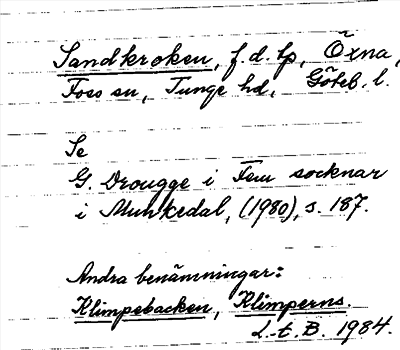 Sandkroken, f.d. lp, Öxna,
Foss sn, Tunge hd, Göteb. l.
Se
G. Drougge i Fem socknar
i Munkedal, (1980), s. 187.
Andra benämningar:
Klimpebacken, Klimperns.
L-t. B. 1984.